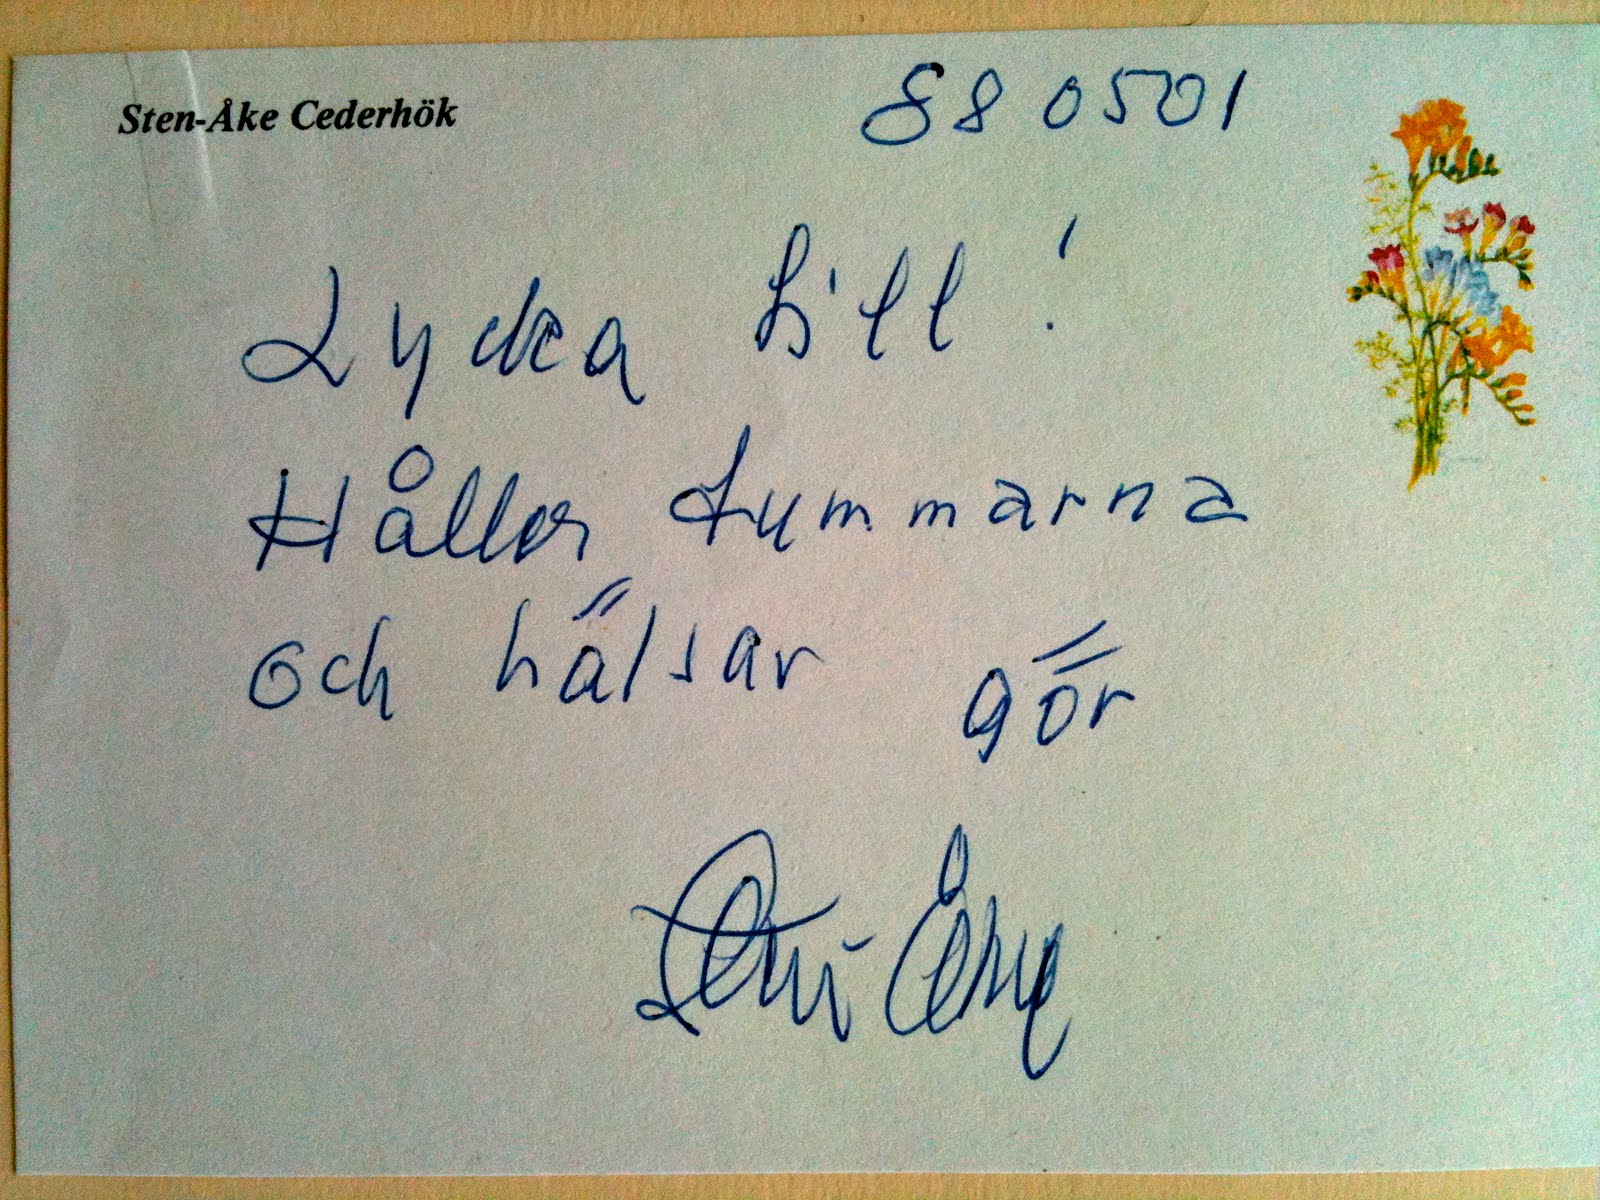 Sten-Åke Cederhök
880501
Lycka till!
Håller tummarna
och hälsar gör
Sten-Åke